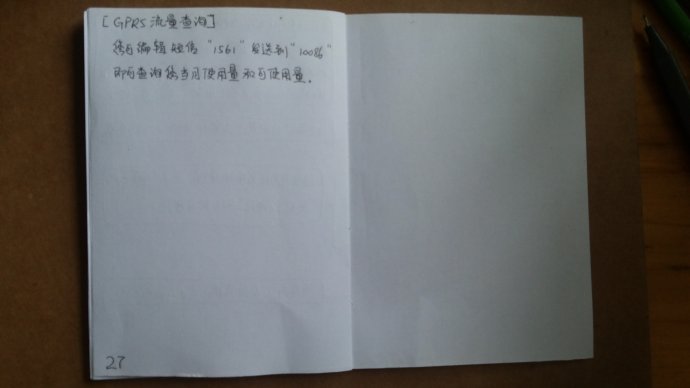 [GPRS流量查询]
您可编辑短信"1561"发送到"10086"
即可查询您当月使用量和可使用量。
27